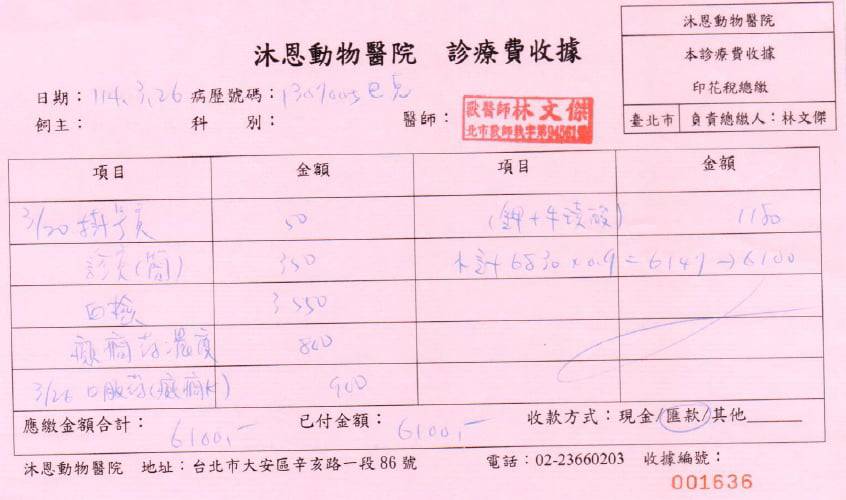 沐恩動物醫院 診療費收據
沐恩動物醫院
本診療費收據
印花稅總繳
臺北市 負責總繳人：林文傑
日期：114.3.26 病歷號碼：
飼主： 科 別： 醫師：
獸醫師林文傑
項目 金額 項目 金額
3/20 掛號費 50 (鉀+牛磺酸) 1180
診費(簡) 350 小計 6830×0.9=6147→6100
血檢 3550
癲癇藥濃度 800
3/26 口服藥(癲癇K) 900
應繳金額合計：6100,- 已付金額：6100,- 收款方式：現金/匯款/其他
沐恩動物醫院 地址：台北市大安區辛亥路一段86號 電話：02-23660203 收據編號：
001636